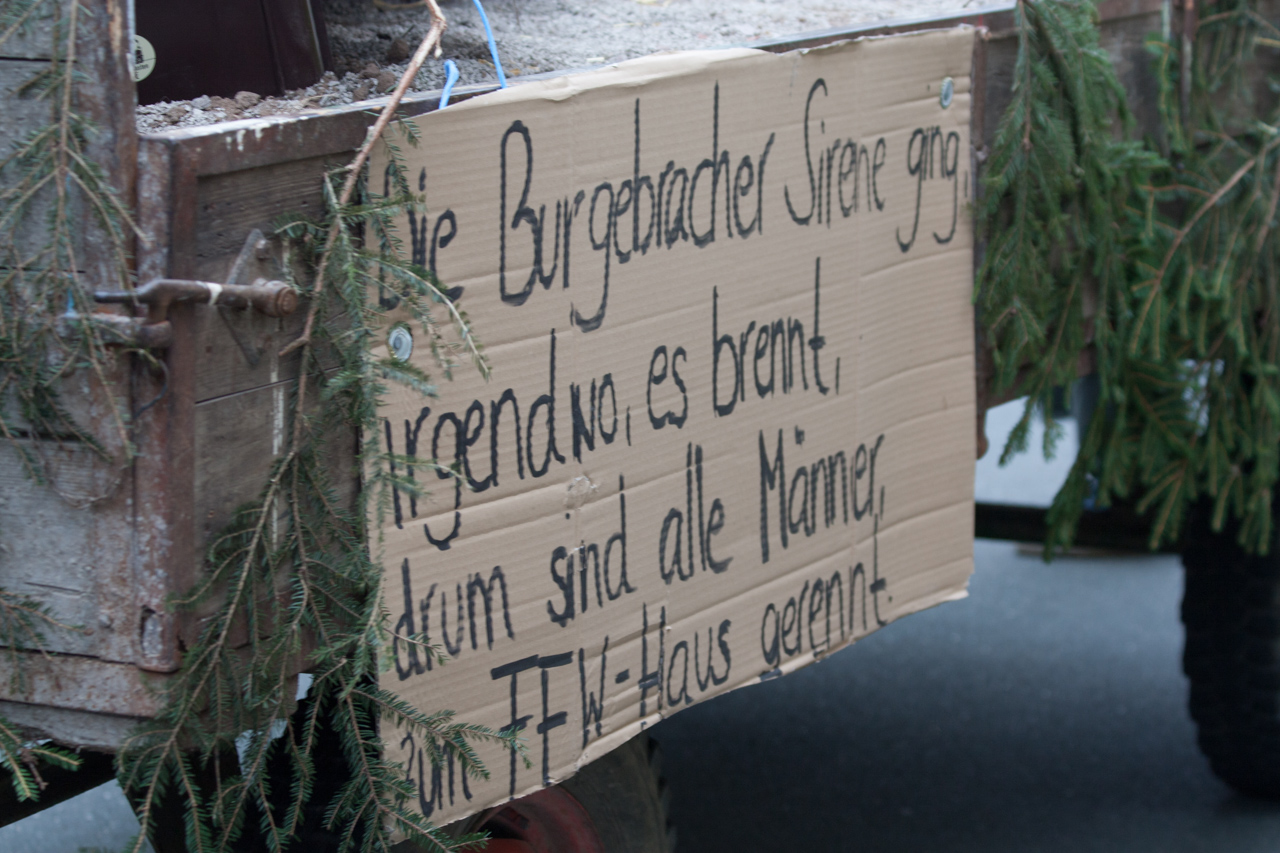 Die Burgebracher Sirene ging,
irgendwo, es brennt,
drum sind alle Männer,
zum FFW-Haus gerennt.